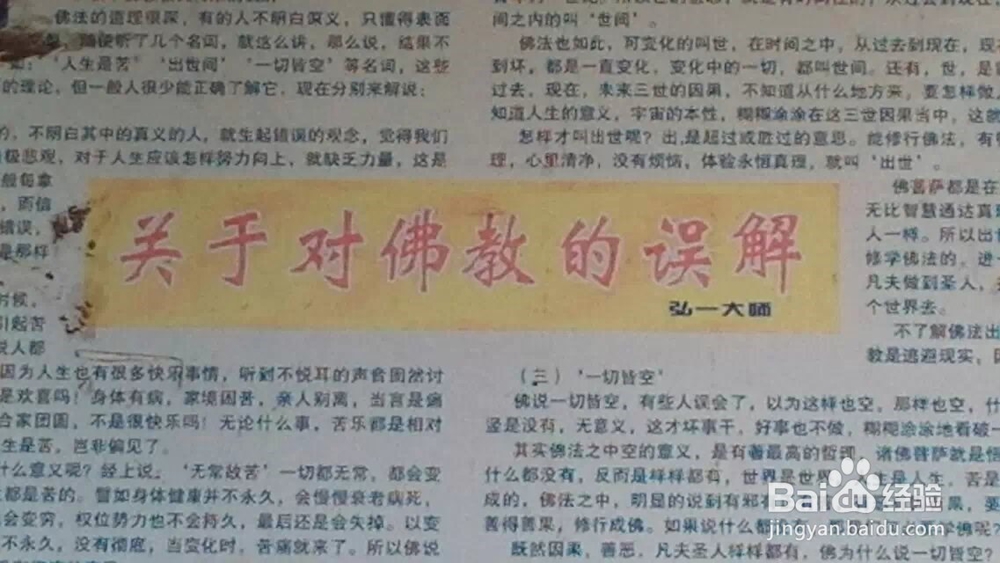 佛法的道理很深，有的人不明白深义，只懂得表面
随便听了几个名词，就这么讲，那么说，结果不
'人生是苦' '出世间' '一切皆空'等名词，这些
的理论，但一般人很少能正确了解它，现在分别来解说：
的，不明白其中的真义的人，就生起错误的观念，觉得我们
极悲观，对于人生应该怎样努力向上，就缺乏力量，这是
般每拿
而信
错误，
是那样
时候，
引起苦
说人都
因为人生也有很多快乐事情，听到不悦耳的声音固然讨
是欢喜吗！身体有病，家境困苦，亲人别离，当言是痛
合家团圆，不是很快乐吗！无论什么事，苦乐都是相对
生是苦，岂非偏见了。
什么意义呢？经上说；'无常故苦'一切都无常，都会变
都是苦的。譬如身体健康并不永久，会慢慢衰老病死，
会变穷，权位势力也不会持久，最后还是会失掉。以变
不永久，没有彻底，当变化时，苦痛就来了。所以佛说
关于对佛教的误解
弘一大师
间之内的叫'世间'。
佛法也如此，可变化的叫世，在时间之中，从过去到现在，现
到坏，都是一直变化，变化中的一切，都叫世间。还有，世，是
过去，现在，未来三世的因果，不知道从什么地方来，要怎样做人
知道人生的意义，宇宙的本性，糊糊涂涂在这三世因果当中，这就
怎样才叫出世呢？出,是超过或胜过的意思。能修行佛法，有
理，心里清净，没有烦恼，体验永恒真理，就叫'出世'。
佛菩萨都是在
无比智慧通达真
人一样。所以出世
修学佛法的，进一
凡夫做到圣人，
个世界去。
不了解佛法出
教是逃避现实，
（三）'一切皆空'
佛说一切皆空，有些人误会了，以为这样也空，那样也空，什
竖是没有，无意义，这才坏事干，好事也不做，糊糊涂涂地看破一
其实佛法之中空的意义，是有着最高的哲理，诸佛菩萨就是悟
什么都没有，反而是样样都有，世界是世界，人生是人生，苦是
成的，佛法之中，明显的说到有邪有
果，要
善得善果，修行成佛。如果说什么都
学佛呢？
既然因果，善恶，凡夫圣人样样都有，佛为什么说一切皆空？
Baidu经验
jingyan.baidu.com